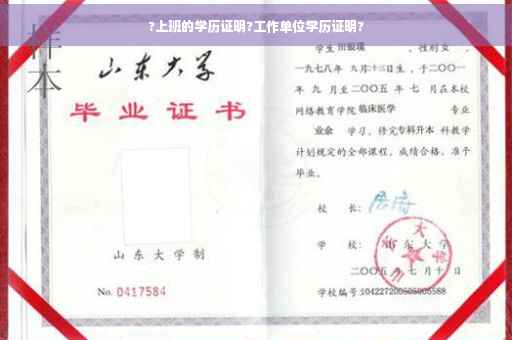 ?上班的学历证明?工作单位学历证明?
样本
山东大学
毕业证书
山东大学制
No. 0417584
学生
性别女,
一九七八年 九月十三日生,于二〇〇一
年 九 月至二〇〇五 年 七 月在本校
网络教育学院 临床医学 专业
业余 学习,修完专科升本 科教学
计划规定的全部课程,成绩合格,准予
毕业。
校 长:
学 校: 山东大学
二〇〇五 年 七 月 十 日
学校编号:104227200505005588